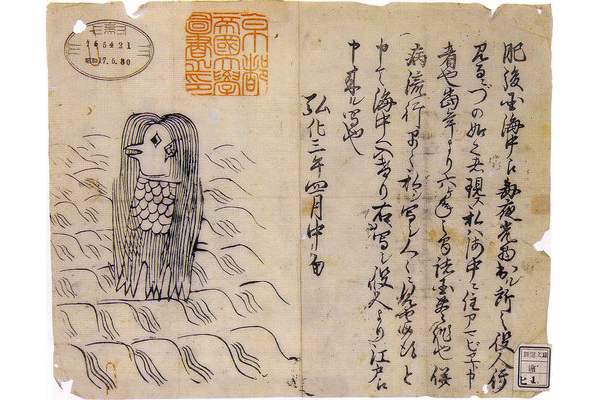 肥後国海中え毎夜光物出ル所之役人行
見るニづの如く者現ス私ハ海中ニ住アマビヱト申
者也当年より六ケ年之間諸国豊作也併
病流行早々私ヲ写シ人々ニ見セ候得と
申て海中へ入けり右写シ役人より江戸え
申来ル写也
弘化三年四月中旬
京都
帝國大學
圖書之印
765421
昭和17.5.30
新聞文庫